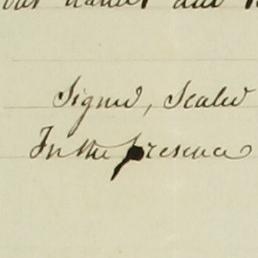 our hands and
Signed, Sealed
In the presence